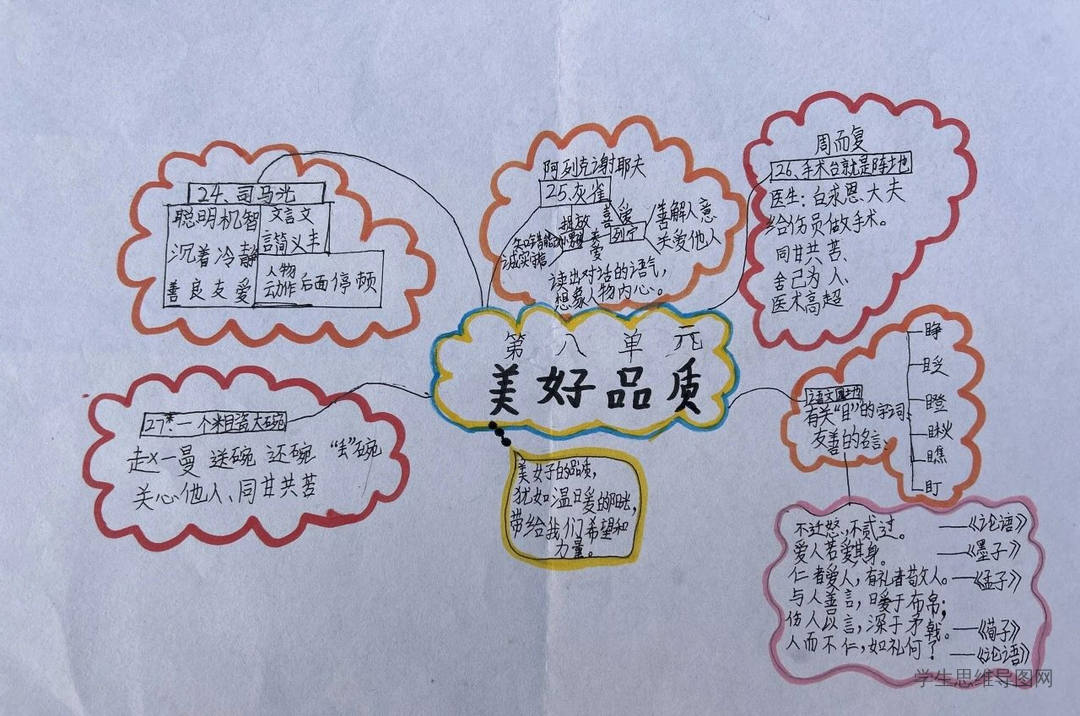 第八单元
美好品质
24.司马光
聪明机智
沉着冷静
善良友爱
文言文
言简义丰
人物
动作后面停顿
阿列克谢耶夫
25.灰雀
捉放
喜爱
列宁
爱
知错能改
诚实
善解人意
关爱他人
读出对话的语气,
想象人物内心。
周而复
26.手术台就是阵地
医生:白求恩大夫
给伤员做手术。
同甘共苦、
舍己为人、
医术高超
27*一个粗瓷大碗
赵一曼 送碗 还碗 “丢”碗
关心他人、同甘共苦
美好的品质,
犹如温暖的阳光,
带给我们希望和
力量。
语文园地
有关“目”的字词:
友善的名言:
睁
眨
瞪
瞅
瞧
盯
不迁怒,不贰过。 ——《论语》
爱人若爱其身。 ——《墨子》
仁者爱人,有礼者敬人。——《孟子》
与人善言,暖于布帛;
伤人以言,深于矛戟。——《荀子》
人而不仁,如礼何? ——《论语》
学生思维导图网